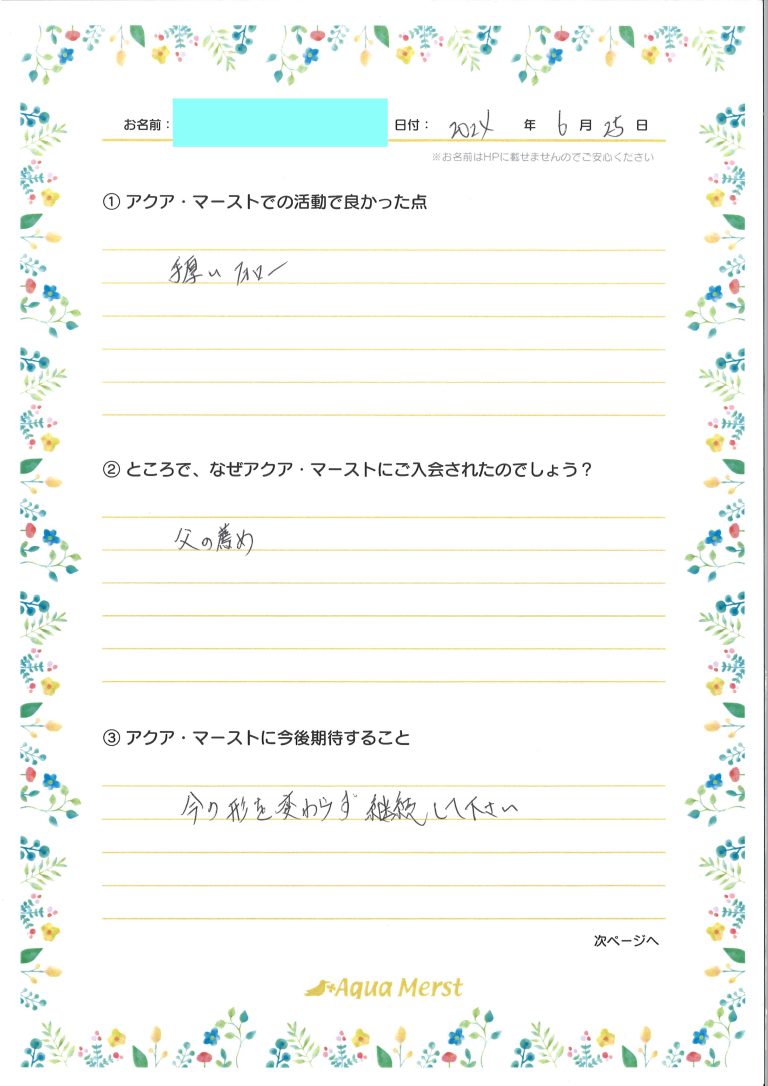 お名前： 日付： 2024 年 6 月 25 日
※お名前はHPに載せませんのでご安心ください
① アクア・マーストでの活動で良かった点
手厚いフォロー
② ところで、なぜアクア・マーストにご入会されたのでしょう？
父の薦め
③ アクア・マーストに今後期待すること
今の形を変わらず継続して下さい
次ページへ
Aqua Merst